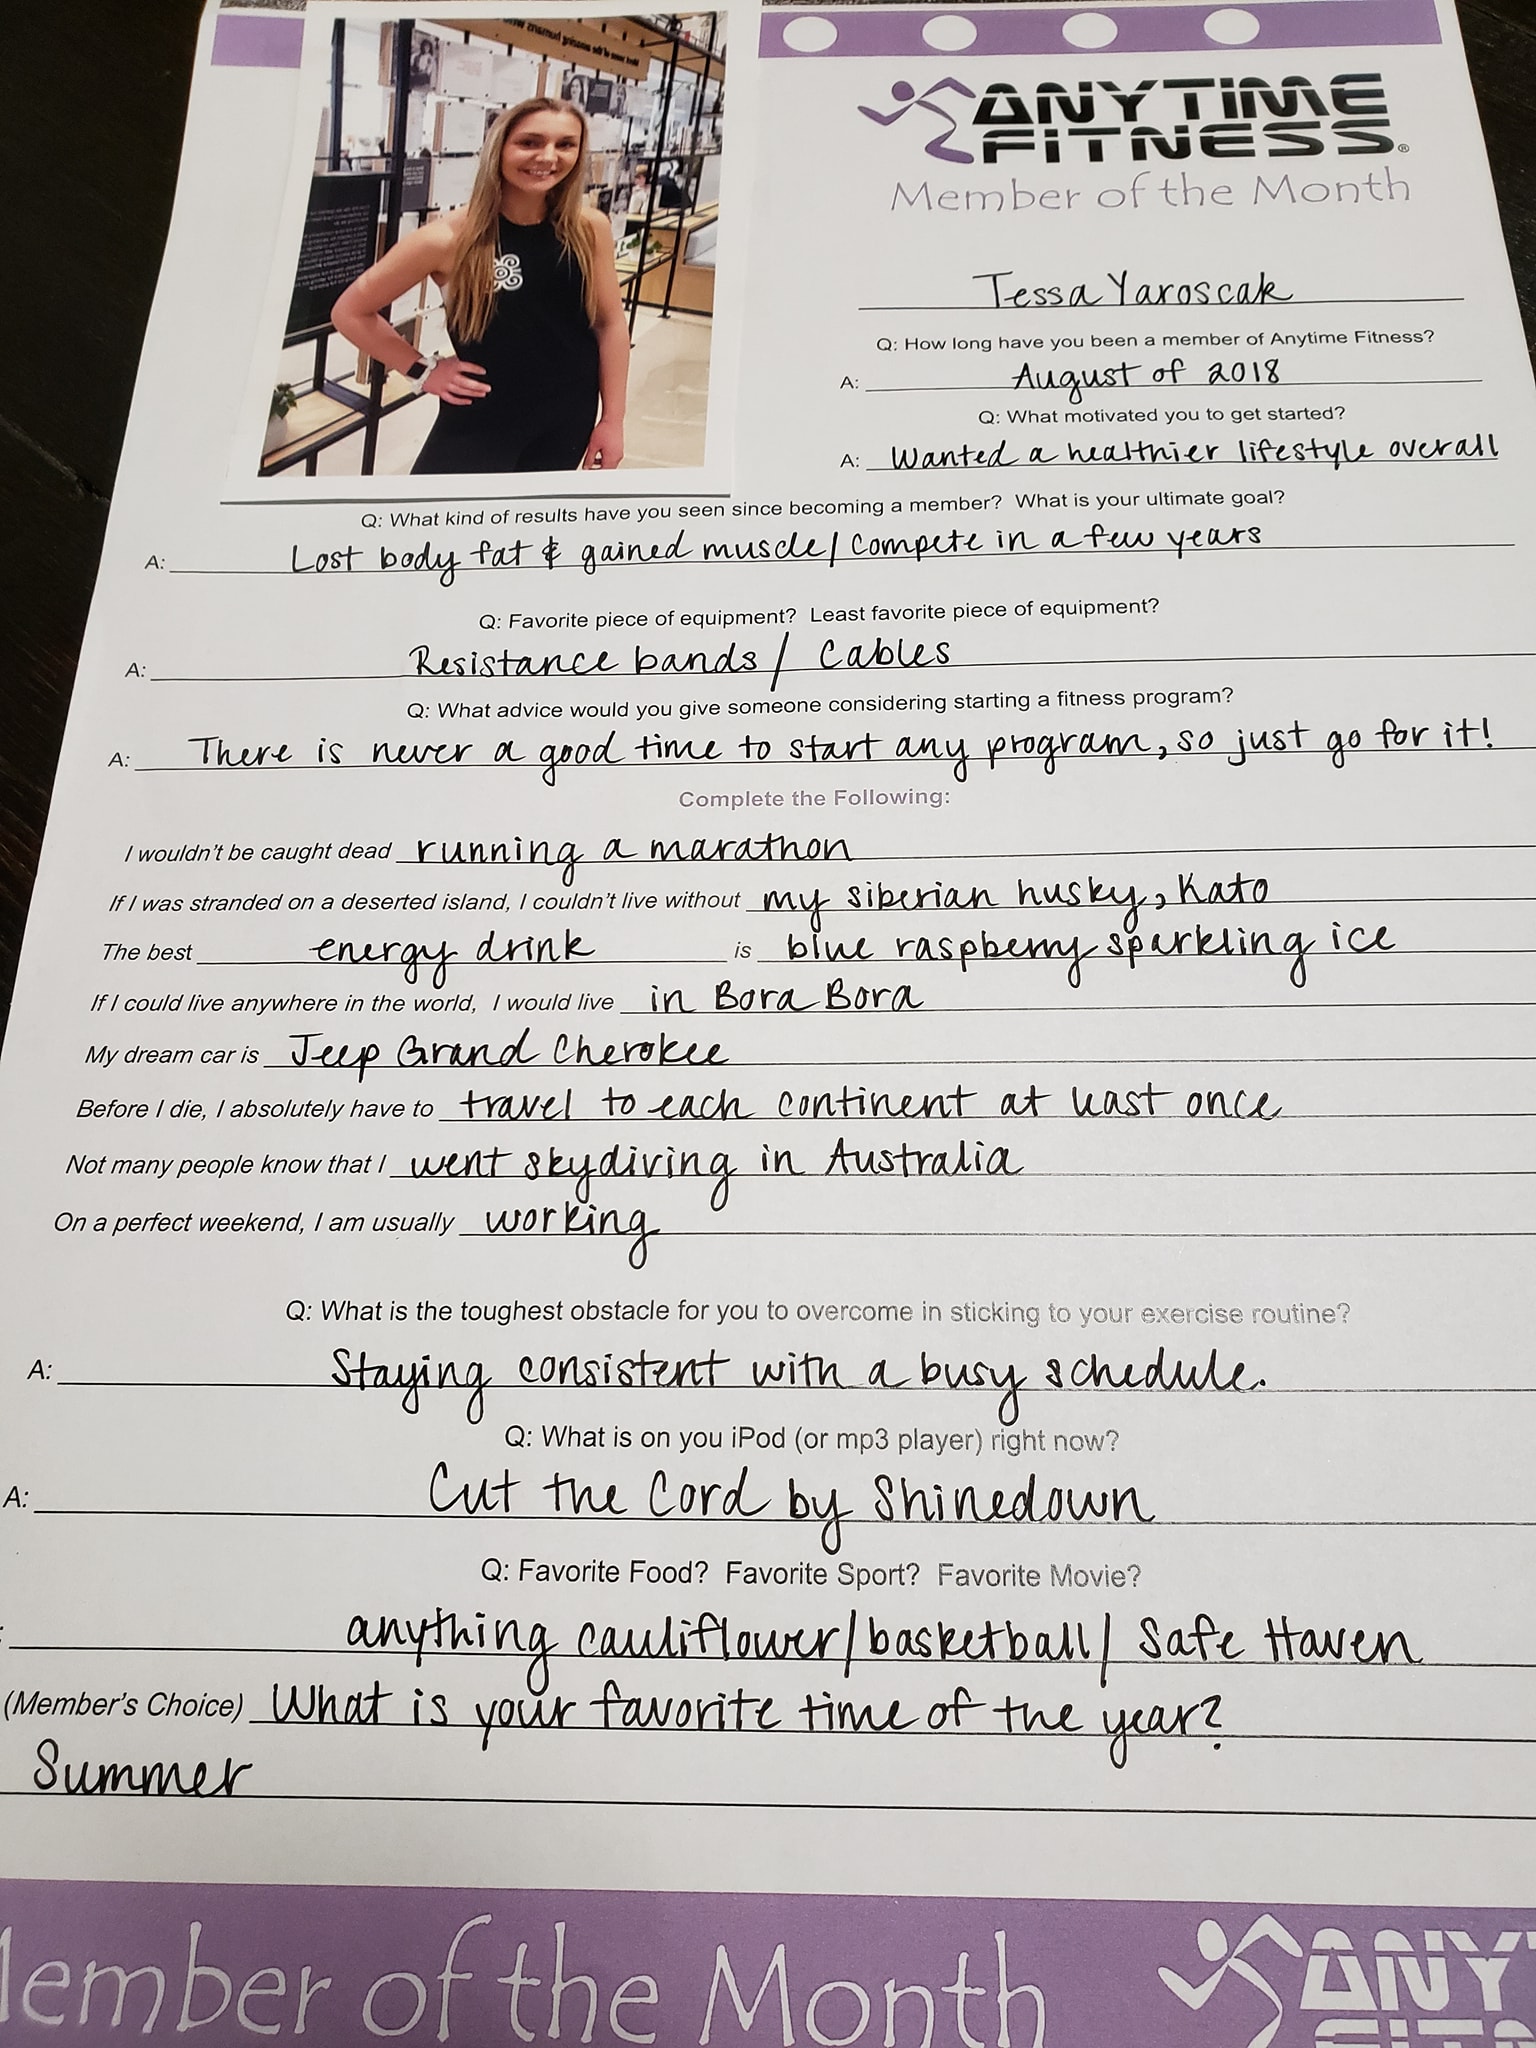 ANYTIME
FITNESS®
Member of the Month
Tessa Yaroscak
Q: How long have you been a member of Anytime Fitness?
A: August of 2018
Q: What motivated you to get started?
A: Wanted a healthier lifestyle overall
Q: What kind of results have you seen since becoming a member? What is your ultimate goal?
A: Lost body fat & gained muscle/compete in a few years
Q: Favorite piece of equipment? Least favorite piece of equipment?
A: Resistance bands / Cables
Q: What advice would you give someone considering starting a fitness program?
A: There is never a good time to start any program, so just go for it!
Complete the Following:
I wouldn't be caught dead running a marathon
If I was stranded on a deserted island, I couldn't live without my siberian husky, Kato
The best energy drink is blue raspberry sparkling ice
If I could live anywhere in the world, I would live in Bora Bora
My dream car is Jeep Grand Cherokee
Before I die, I absolutely have to travel to each continent at least once
Not many people know that I went skydiving in Australia
On a perfect weekend, I am usually working
Q: What is the toughest obstacle for you to overcome in sticking to your exercise routine?
A: Staying consistent with a busy schedule.
Q: What is on you iPod (or mp3 player) right now?
A: Cut the Cord by Shinedown
Q: Favorite Food? Favorite Sport? Favorite Movie?
: anything cauliflower/basketball/ Safe Haven
(Member's Choice) What is your favorite time of the year?
Summer
ember of the Month
ANY